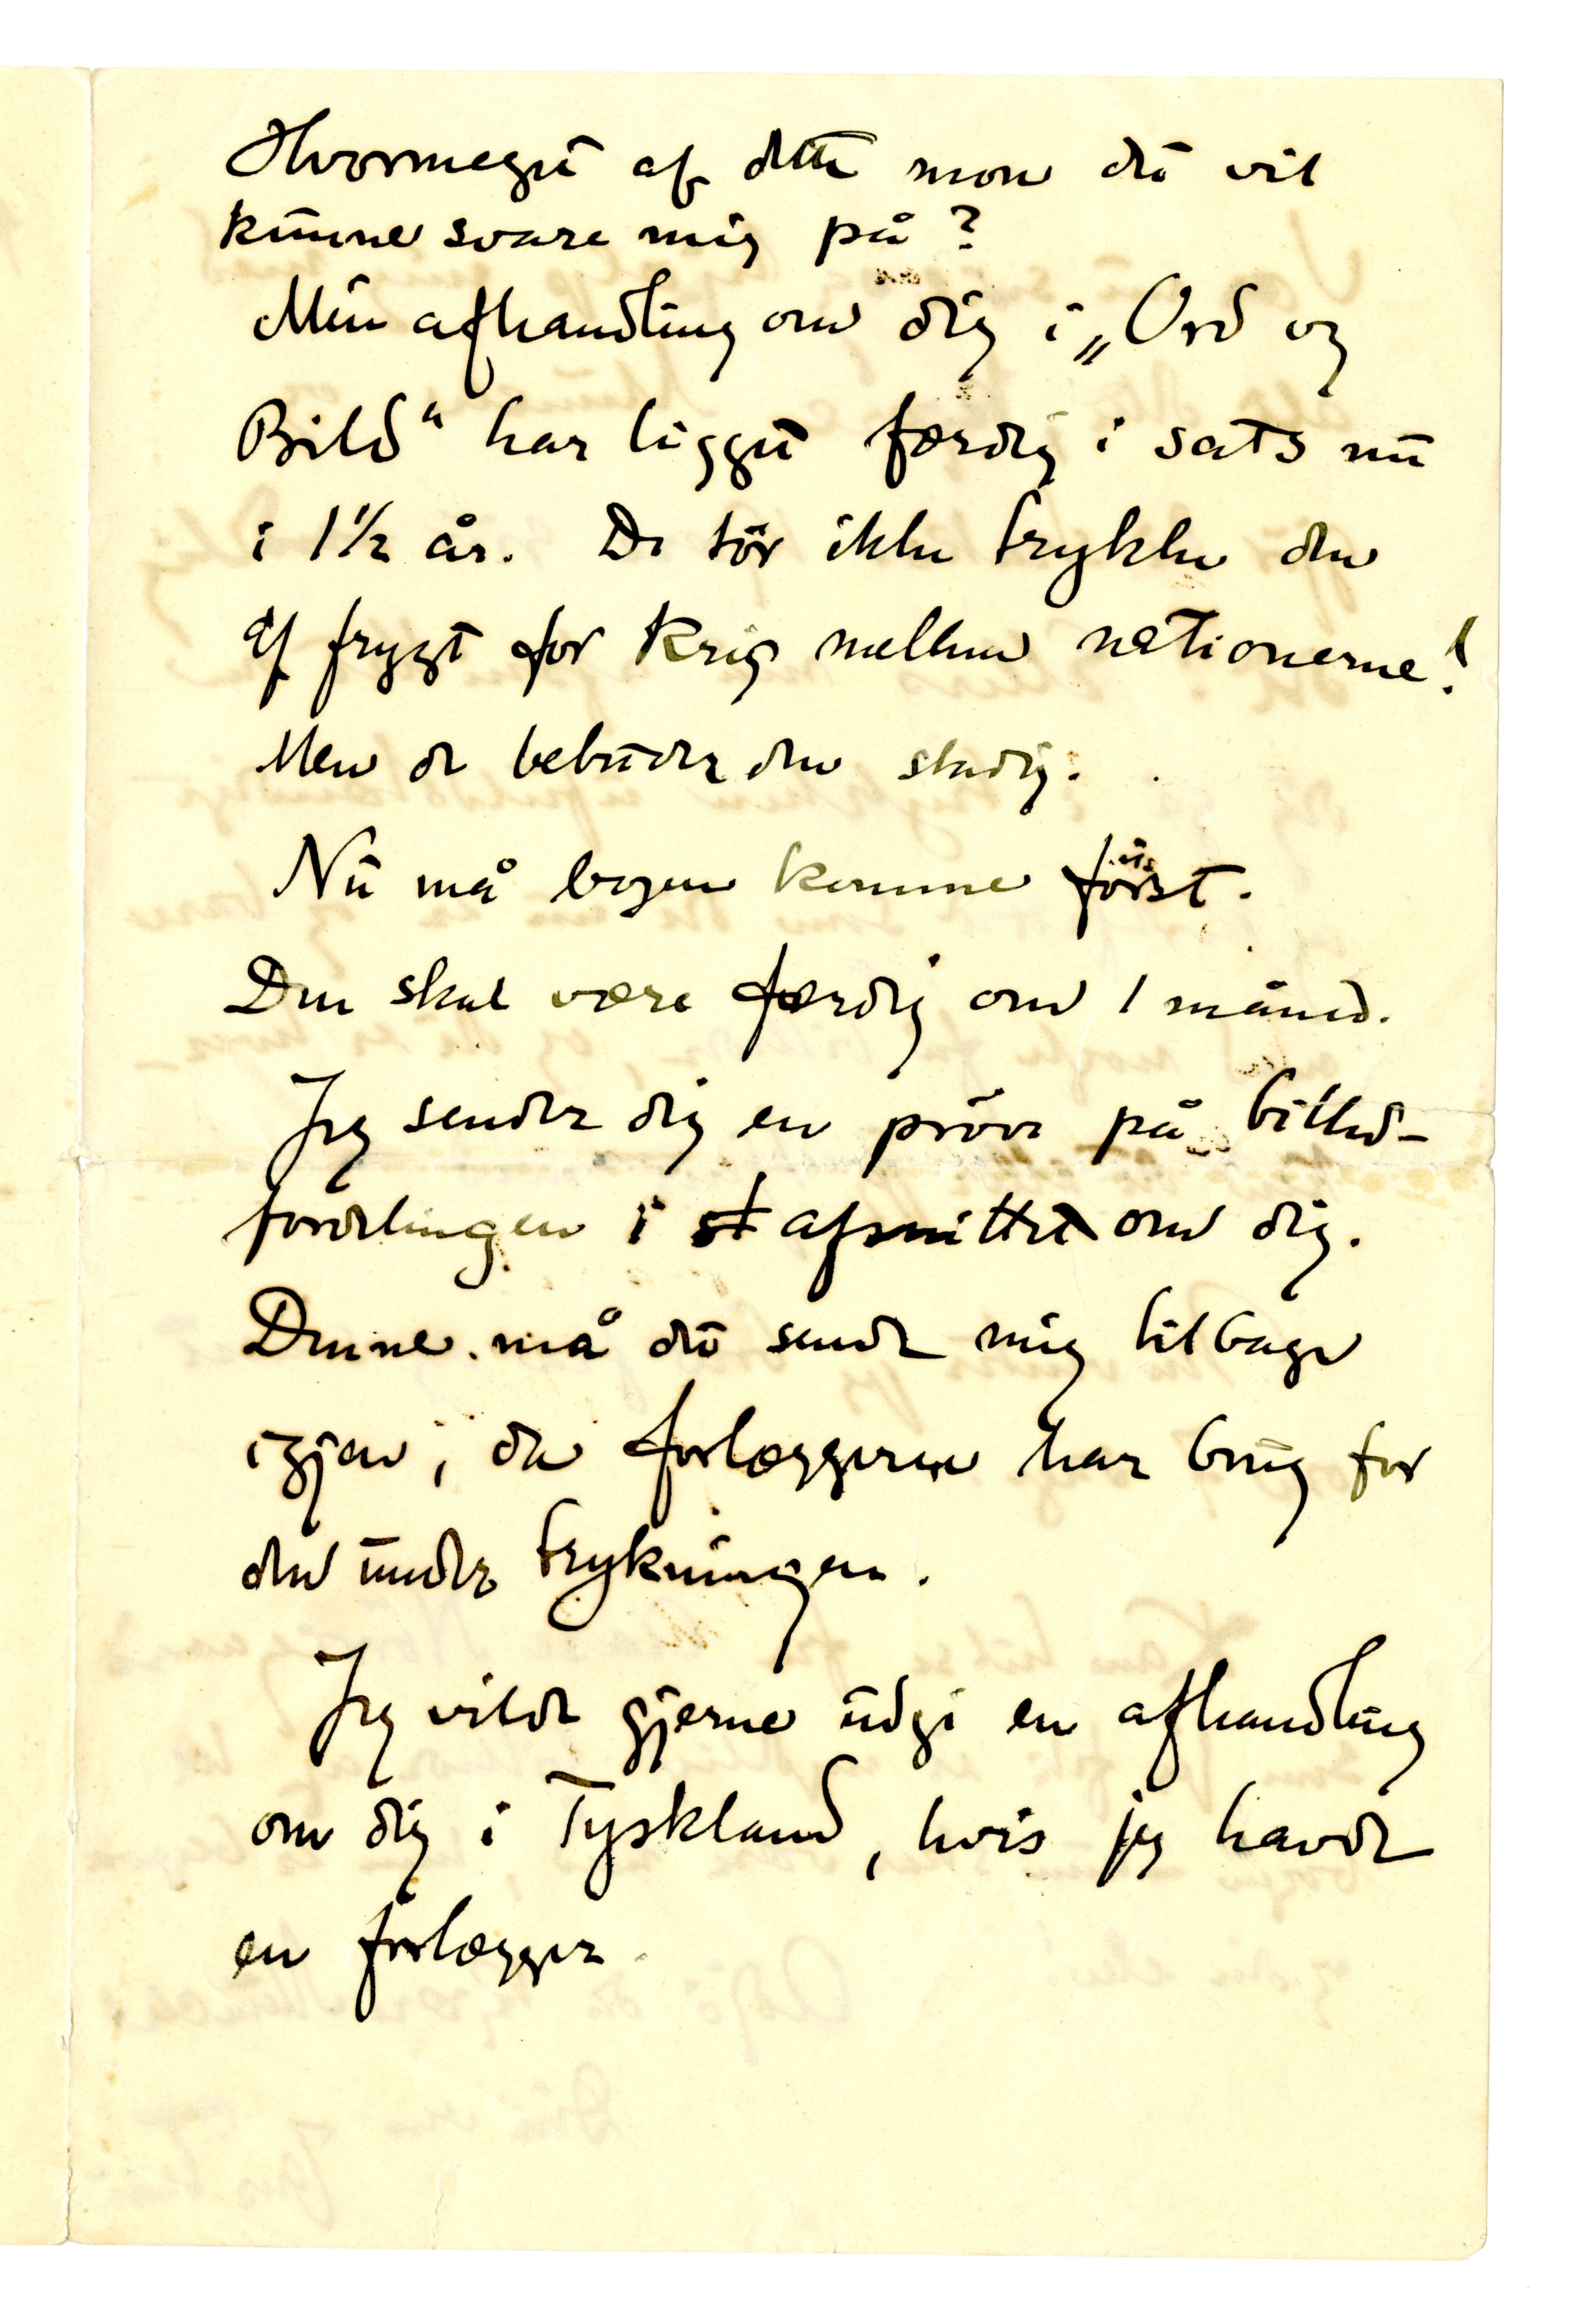 Hvormeget af dette mon du vil
kunne svare mig på?
Min afhandling om dig i „Ord og
Bild“ har ligget færdig i sats nu
i 1½ år. De tör ikke trykke den
af frygt for krig mellem nationerne!
Men de bebuder den stadig.
Nu må bogen komme först.
Den skal være færdig om 1 måned.
Jeg sender dig en pröve på billed-
fordelingen i st afsnittet om dig.
Denne må du sende mig tilbage
igjen, da forlæggeren har brug for
den under trykningen.
Jeg vilde gjerne udgi en afhandling
om dig i Tyskland, hvis jeg havde
en forlægger.